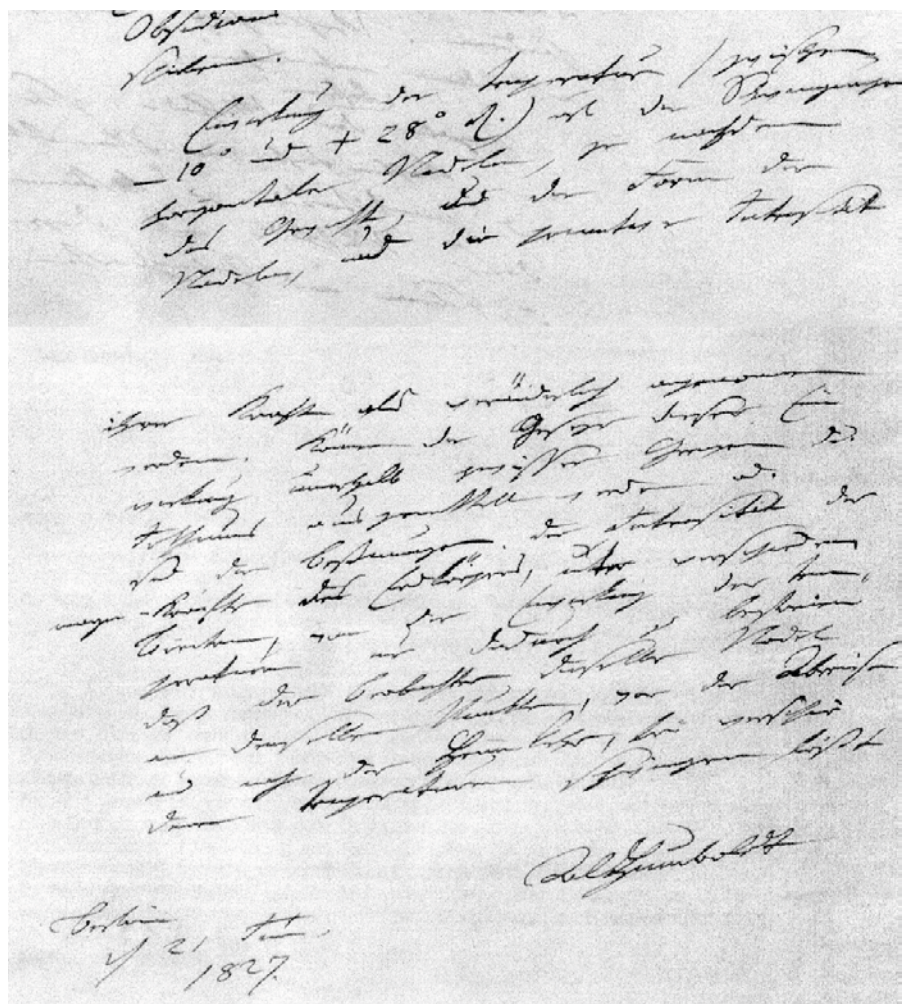 Obsidian
Einwirkung der temperatur (zwischen
− 10° und + 28° R.) auf die Schwingungen
horizontaler Nadeln, je nachdem
das Gewicht, und die Form der
Nadeln, und die Intensität
ihrer Kraft als veränderlich angenommen
werden. Können die Gesetze dieser Ein
wirkung innerhalb gewisser Grenzen des
ausgemittelt werden
die Bestimmungen der Intensität der
magn. Kräfte des Erdkörpers, unter verschiedenen
Breiten, von der Einwirkung der tem-
peraturen nur dadurch zu befreien
daß der Beobachter dieselbe Nadel
an demselben Punkte, vor der Abreise
und nach der Heimkehr, bei verschie
denen temperaturen schwingen läßt
AlHumboldt
Berlin
21
1827.